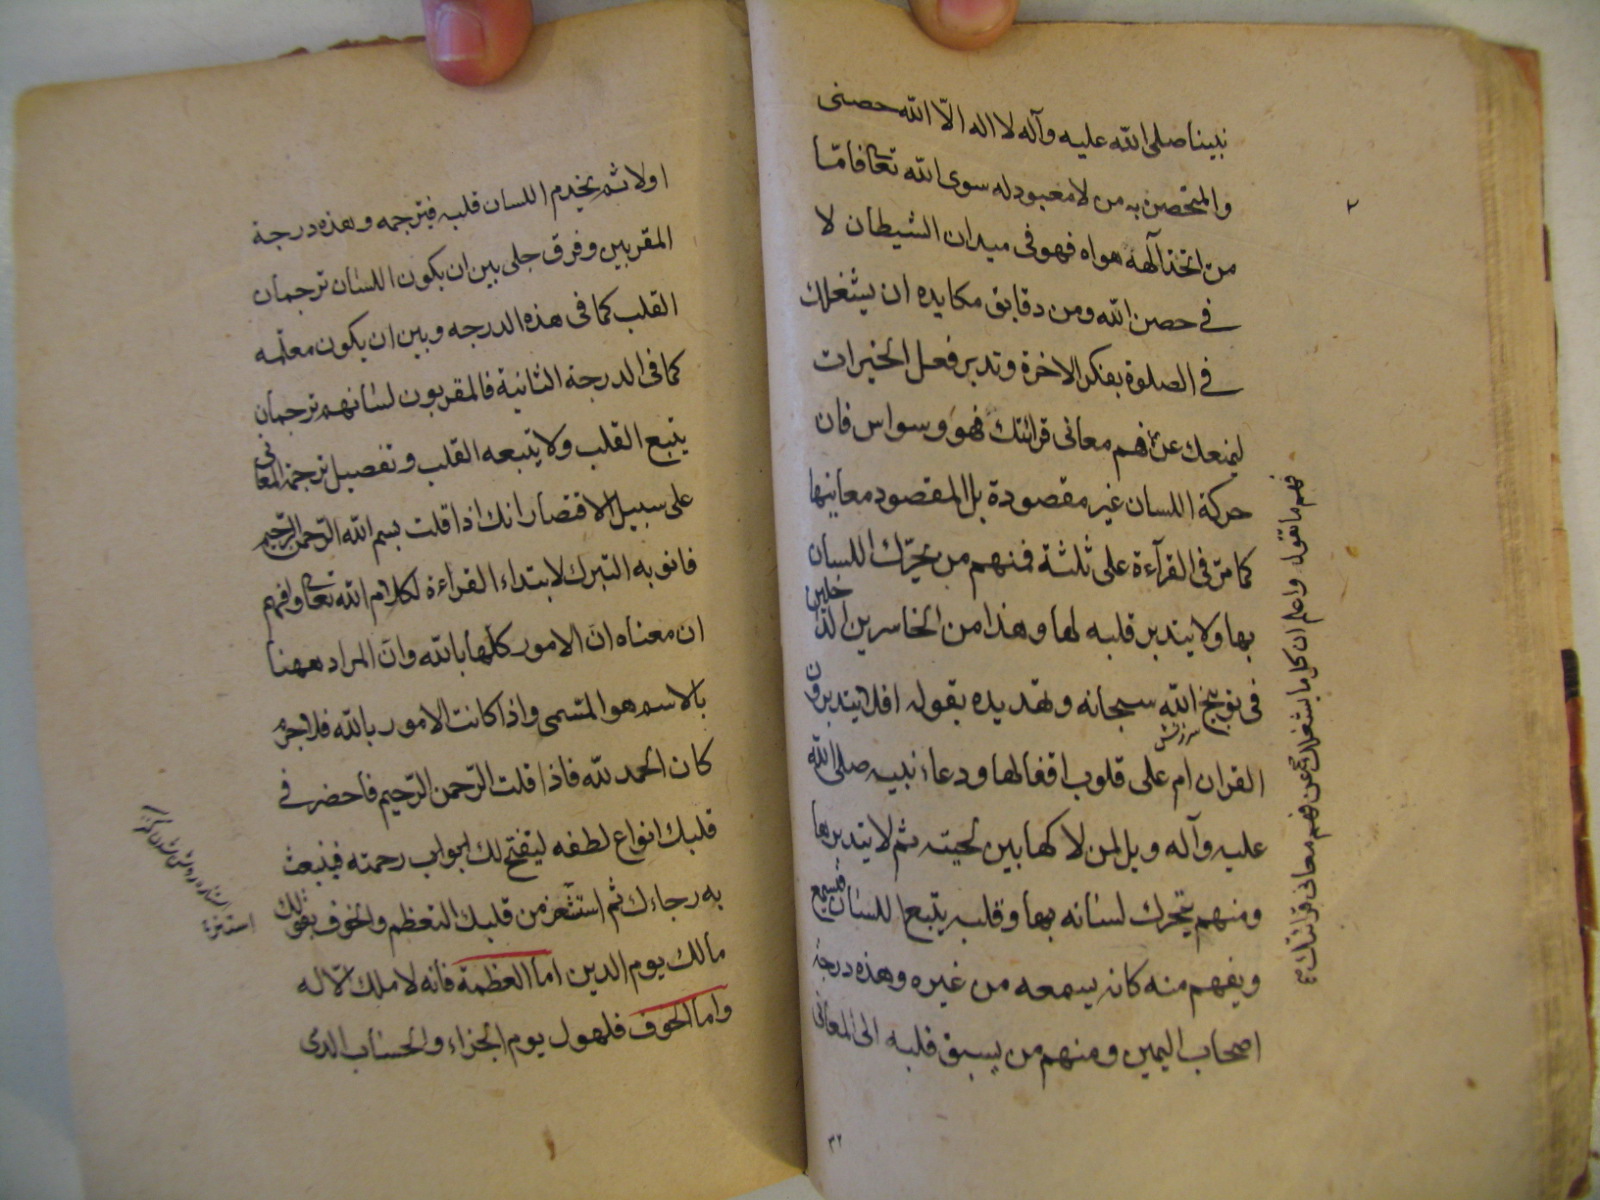 نبينا صلى الله عليه وآله لا اله الّا الله حصنى
والمتحصن به من لا معبود له سوى الله تعالى فامّا
من اتخذ آلهه هواه فهو فى ميدان الشيطان لا
فى حصن الله ومن دقايق مكايده ان يشغلك
فى الصلوة بفكر الاخرة وتدبر فعل الخيرات
ليمنعك عن فهم معانى قرائتك فهو وسواس فان
حركة اللسان غير مقصودة بل المقصود معانيها
كما مرّ فى القرآءة على ثلثة فمنهم من يتحرّك اللسان
بها ولا يتدبر قلبه لها وهذا من الخاسرين الداخلين
فى توبيخ الله سبحانه وتهديده بقوله افلا يتدبرون
سرزنش
القران ام على قلوب اقفالها ودعاء نبيه صلى الله
عليه وآله ويل لمن لاكها بين لحيته ثم لا يتدبرها
ومنهم يتحرك لسانه بها وقلبه يتبع اللسان فيسمع
ويفهم منه كانه يسمعه من غيره وهذه درجة
اصحاب اليمين ومنهم من يسبق قلبه الى المعانى
فهم ما تقول واعلم ان كل ما يشغلك عن فهم معانى قرائتك
٢
٣٢
اولا ثم يخدم اللسان قلبه فيترجمه وهذه درجة
المقربين وفرق جلى بين ان يكون اللسان ترجمان
القلب كما فى هذه الدرجه وبين ان يكون معلّمه
كما فى الدرجة الثانية فالمقربون لسانهم ترجمان
يتبع القلب ولا يتبعه القلب وتفصيل ترجمة المعانى
على سبيل الاقتصار انك اذا قلت بسم الله الرّحمن الرّحيم
فانو به التبرك لابتداء القراءة لكلام الله تعالى وافهم
ان معناه انّ الامور كلّها بالله وانّ المراد ههنا
بالاسم هو المسّمى واذا كانت الامور بالله فلا جرم
كان الحمد لله فاذا قلت الرّحمن الرّحيم فاحضر فى
قلبك انواع لطفه ليفتح لك ابواب رحمته فينبعث
به رجاءك ثم استشعر من قلبك التعظم والخوف بقولك
مالك يوم الدين اما العظمة فانه لا ملك الّا له
واما الخوف فلهول يوم الجزاء والحساب الذى